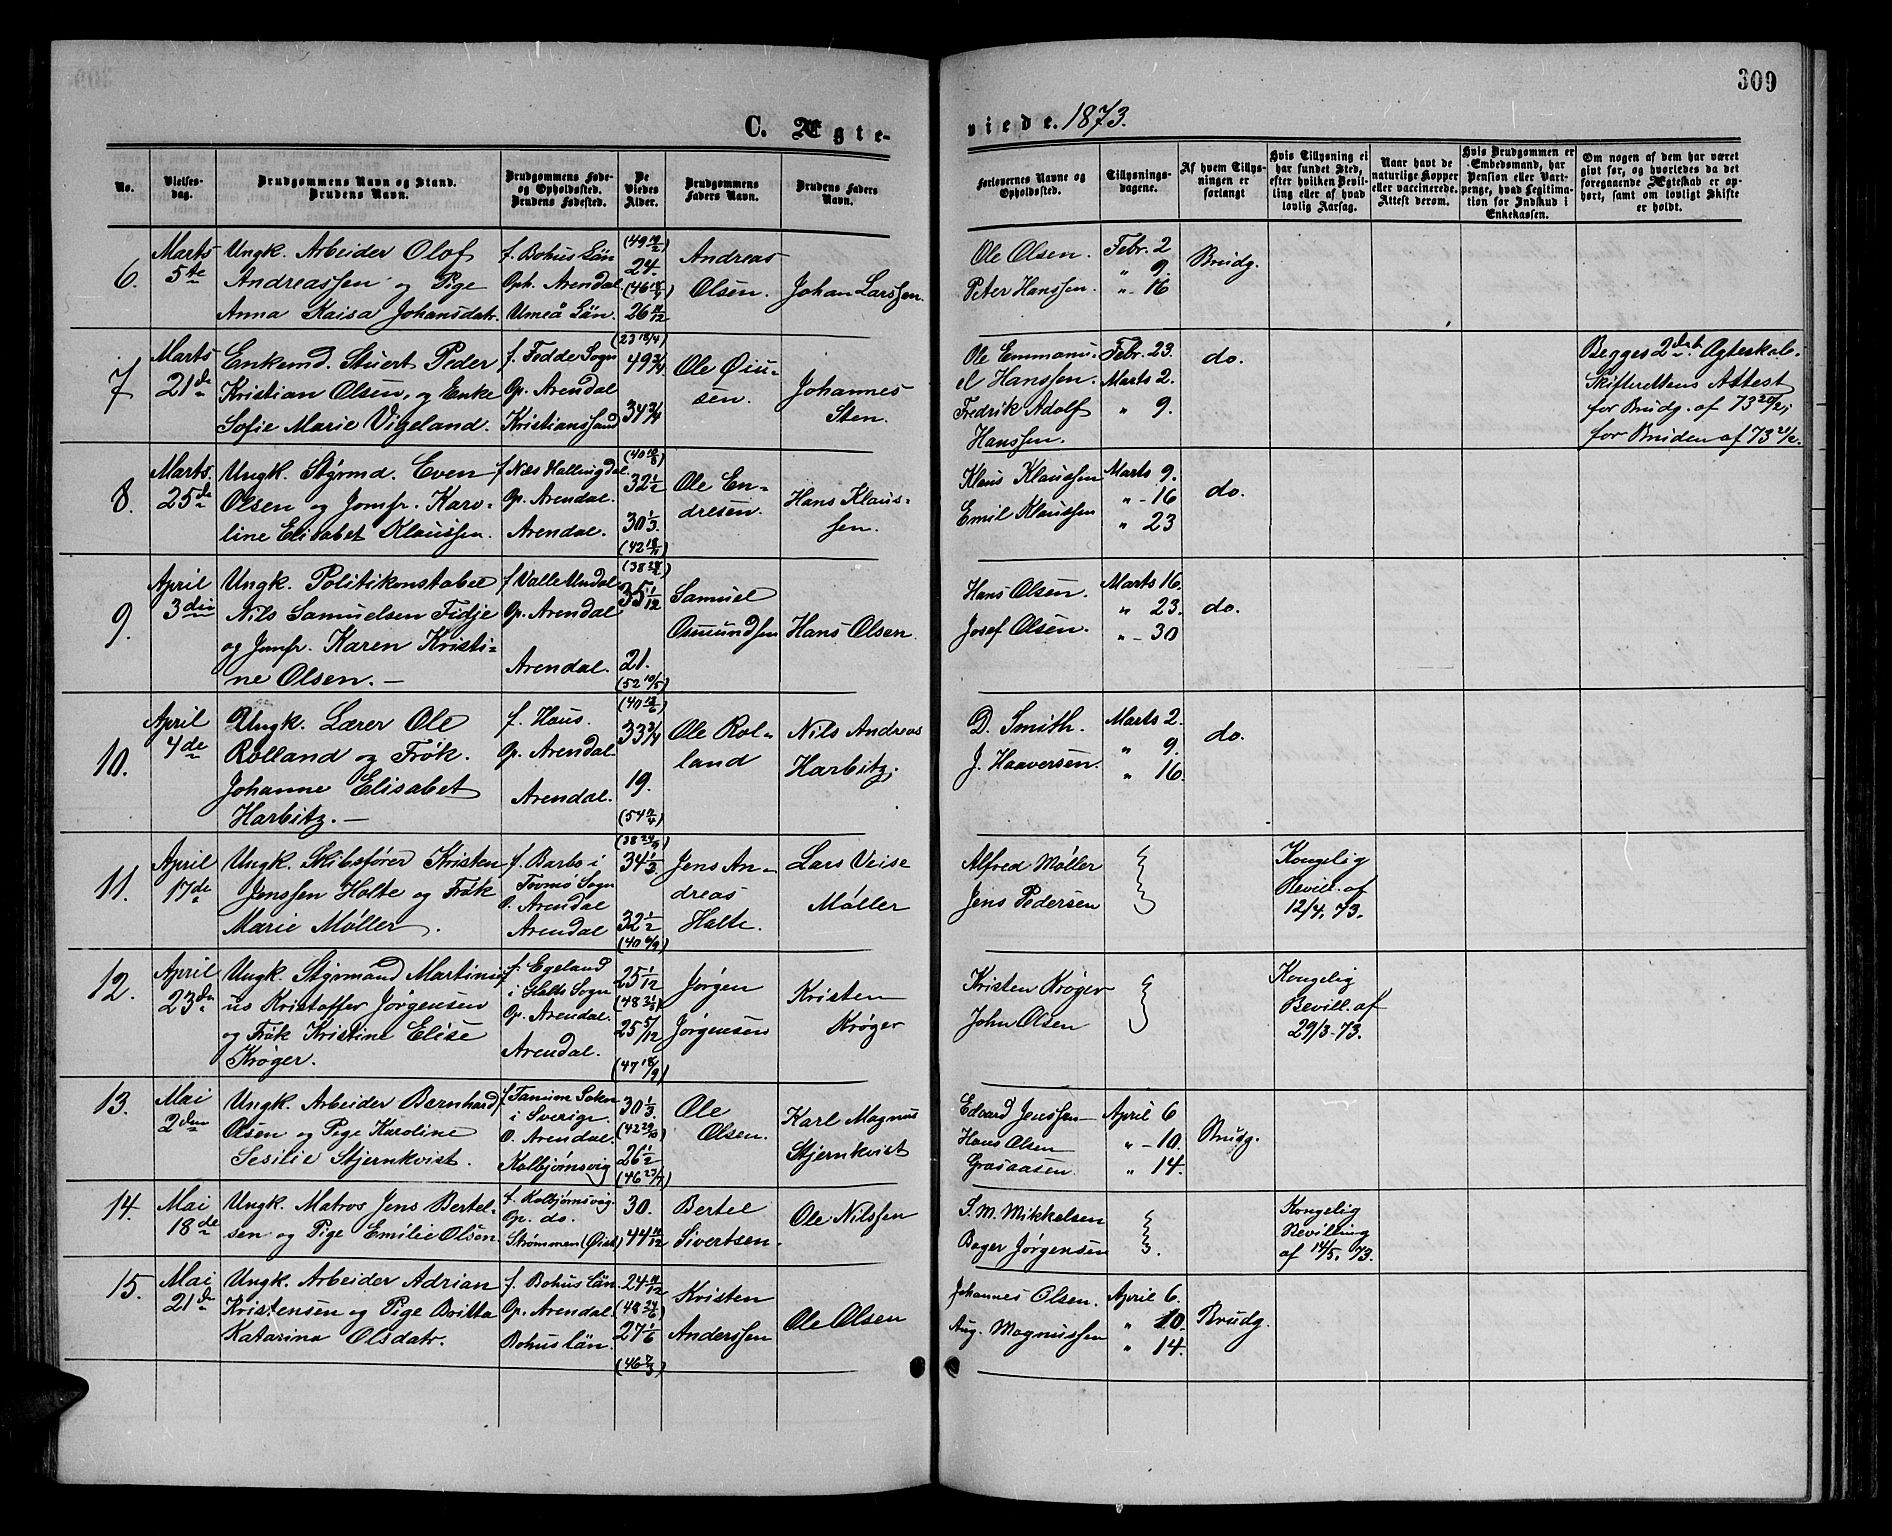 309
C. Ægte-
viede. 1873.
No.
Vielses-
dag.
Brudgommens Navn og Stand.
Brudens Navn.
Brudgommens Føde-
og Opholdssted.
Brudens Fødested.
De
Viedes
Alder.
Brudgommens
Faders Navn.
Brudens Faders
Navn.
Forlovernes Navne og
Opholdssted.
Tillysnings-
dagene.
Af hvem Tillys-
ningen er
forlangt
Hvis Tillysning ei
har fundet Sted,
efter hvilken Bevil-
ling eller af hvad
lovlig Aarsag.
Naar havt de
naturlige Kopper
eller vaccinerede.
Attest derom.
Hvis Brudgommen er
Embedsmand, har
Pension eller Vart-
penge, hvad Legitima-
tion for Indskud i
Enkekassen.
Om nogen af dem har været
gift før, og hvorledes da det
foregaaende Ægteskab er op-
hørt, samt om lovligt Skifte
er holdt.
6.
Marts
5te
Ungk. Arbeider Olof
Andreassen og Pige
Anna Kaisa Johansdatr.
f. Bohus Län
Oph. Arendal
Umeå Län.
24.
26 11/12
Andreas
Olsen.
Johan Larssen.
Ole Olsen.
Peter Hanssen.
Febr. 2
" 9.
" - 16
Brudg.
7
Marts
21de
Enkemd. Stuert Peder
Kristian Olsen, og Enke
Sofie Marie Vigeland.
f. Fedde Sogn
Op. Arendal
Kristianssand
49 3/4
34 3/4
Ole Øiu-
sen.
Johannes
Sten.
Ole Emmanu-
el Hanssen.
Fredrik Adolf
Hanssen.
Febr. 23.
Marts 2.
" 9.
do.
Begges 2det Ægteskab.
Skifterettens Attest
for Brudg. af 73 20/2;
for Bruden af 73 21/2.
8.
Marts
25de
Ungk. Styrmd. Even
Olsen og Jomfr. Karo-
line Elisabet Klaussen.
f. Næs Hallingdal
Op. Arendal.
Arendal.
32 1/2
30 1/3.
Ole En-
dresen.
Hans Klaus-
sen.
Klaus Klaussen
Emil Klaussen
Marts 9.
" - 16
" 23
do.
9.
April
3die
Ungk. Politikonstabel
Nils Samuelsen Fidje
og Jomfr. Karen Kristi-
ne Olsen. -
f. Valle Undal
Op. Arendal
Arendal.
(38 28/2)
35 1/12
21.
(52 10/5)
Samuel
Osmundsen
Hans Olsen.
Hans Olsen.
Josef Olsen.
Marts 16.
" 23.
" - 30
do.
10.
April
4de
Ungk. Lærer Ole
Rolland og Frøk.
Johanne Elisabet
Harbitz. -
f. Haus.
Op. Arendal
Arendal.
33 3/4
19.
Ole Rol-
land
Nils Andreas
Harbitz.
D. Smith.
J. Haaversen.
Marts 2.
" 9.
" 16.
do.
11.
April
17de
Ungk. Skibsfører Kristen
Jenssen Holte og Frøk
Marie Møller.
f. Barbo i
Tromø Sogn
O. Arendal
Arendal
34 1/3
32 1/2
Jens An-
dreas
Holte.
Lars Veise
Møller
Alfred Møller
Jens Pedersen
Kongelig
Bevill. af
12/4. 73.
12.
April
23de
Ungk. Styrmand Martini-
us Kristoffer Jørgensen
og Frøk Kristine Elise
Krøger.
f. Egeland
i Holts Sogn
Op. Arendal.
Arendal.
25 1/12
25 5/12
(47 18/9)
Jørgen
Jørgensen
Kristen
Krøger
Kristen Krøger
John Olsen
Kongelig
Bevill. af
29/3 - 73.
13.
Mai
2den
Ungk. Arbeider Bernhard
Olsen og Pige Karoline
Sesilie Stjernkvist.
f. Tanum Soken
i Sverige.
O. Arendal.
Kolbjørnsvig
30 1/3.
26 1/2
(46 23/7)
Ole
Olsen.
Karl Magnus
Stjernkvist
Edvard Jenssen
Hans Olsen
Graaaasen.
April 6
" - 10.
" 14.
Brudg.
14.
Mai
18de
Ungk. Matros Jens Bertel-
sen og Pige Emilie Olsen.
f. Kolbjørnsvig.
Op. do.
Strømmen (Øiest)
30.
44 11/12
Bertel
Sivertsen.
Ole Nilssen
S. M. Mikkelsen
Boger Jørgensen
Kongelig
Bevilling
af 14/5. 73.
15.
Mai
21de
Ungk. Arbeider Adrian
Kristensen og Pige Britta
Katarina Olsdatr.
f. Bohus Län
Op. Arendal
Bohuslän.
24 11/12
27 1/6
Kristen
Anderssen
Ole Olsen
Johannes Olsen.
Aug. Magnussen
April 6.
" 10.
" 14.
Brudg.